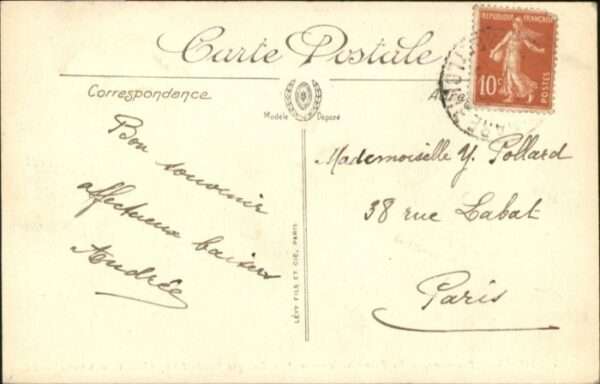 Carte Postale
RÉPUBLIQUE FRANÇAISE
10c
POSTES
Correspondance
Modèle Déposé
Bon souvenir
affectueux baisers
Andrée
LÉVY FILS ET CIE, PARIS
Mademoiselle Y. Pollard
38 rue Labat
Paris